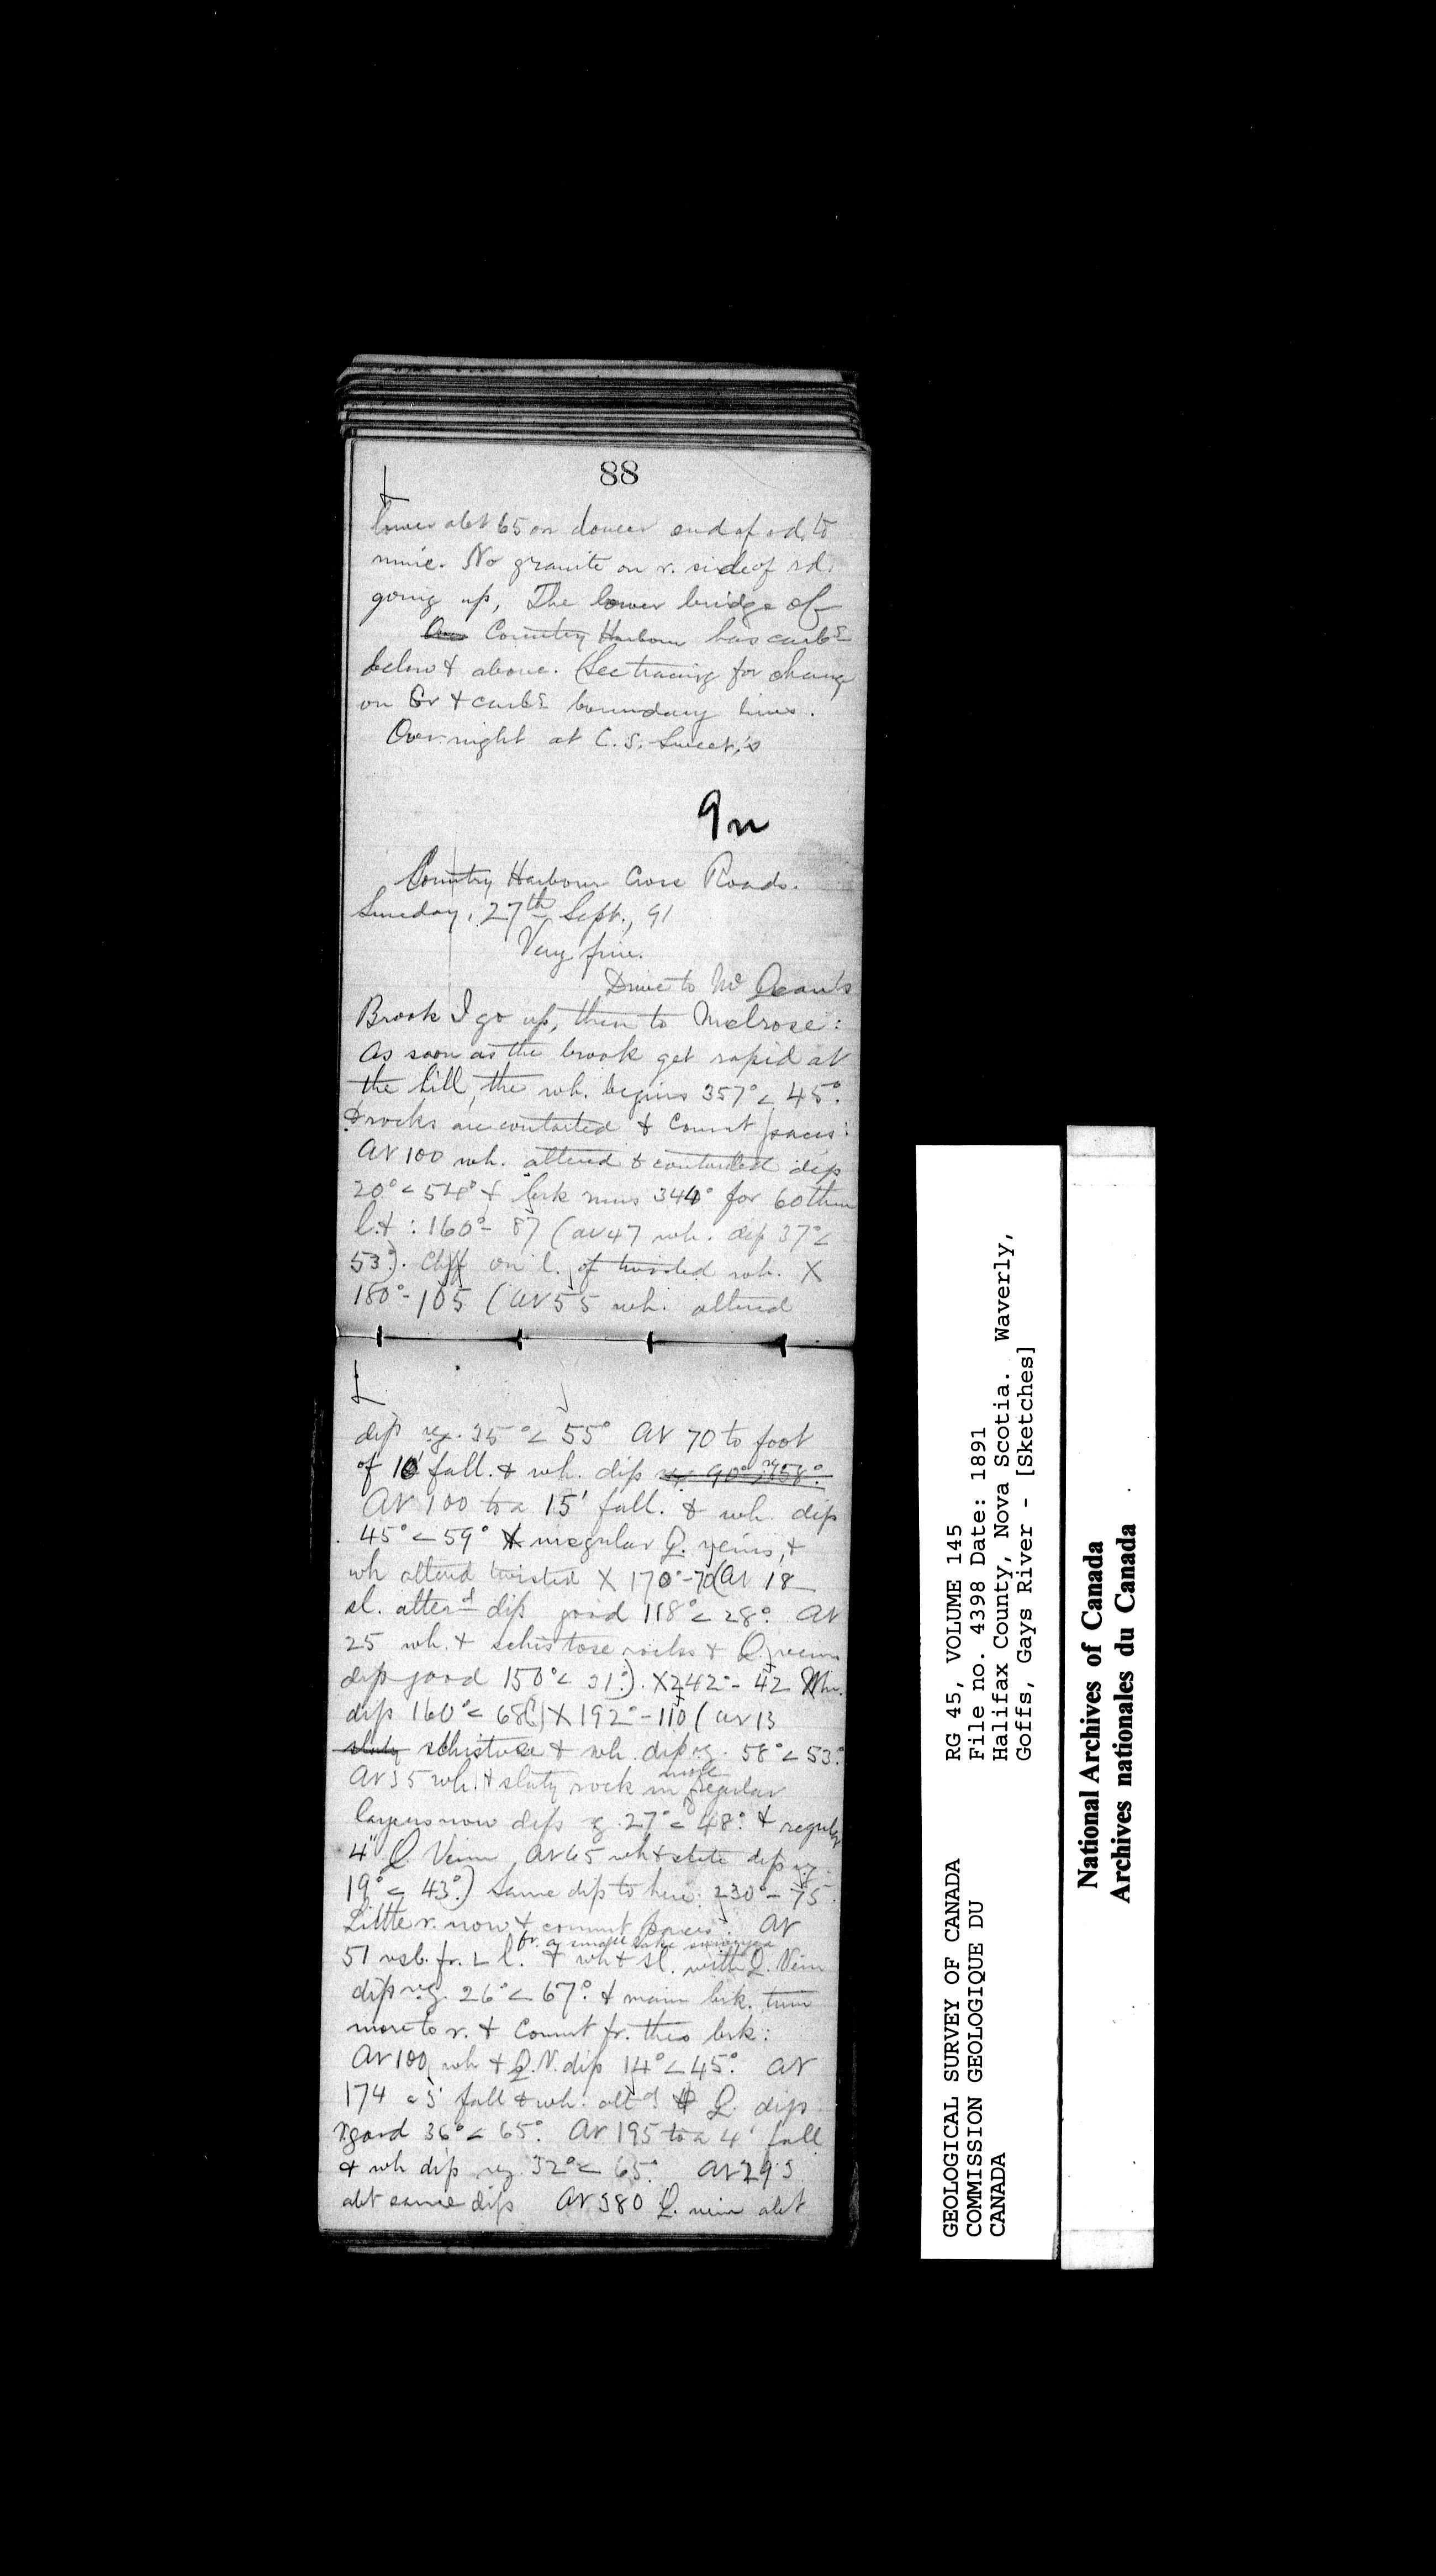 88
lower abt 65 on lower end of rd. to
mine. No granite on r. side of rd.
going up, The lower bridge of
Country Harbour has carbs
below & above. (See tracing for change
on Gr & carbs boundary lines.
Over night at C. S. Sweet's
9n
Country Harbour Cross Roads.
Sunday, 27th Sept., 91
Very fine.
Drive to Mc
Brook I go up, then to Melrose:
As soon as the brook get rapid at
the hill, the wh. begins 357° < 45°.
& rocks are contorted & Count paces:
At 100 wh. altered & contorted dip
20° < 54° & brk runs 344° for 60 then
l. + : 160° - 87 (at 47 wh. dip 37° <
53°). Cliff on l. of twisted wh. X
180° - 105 (at 55 wh. altered
dip reg. 35° < 55° At 70 to foot
of 10' fall. & wh. dip
At 100 to a 15' fall. & wh. dip
45° < 59° & irregular Q. veins, &
wh altered twisted X 170° - 70 (At 18
sl. alterd dip good 118° < 28°. At
25 wh. & schistose rocks & Q. veins
dip good 150° < 31°.) X 242° - 42 Wh.
dip 160° < 68°) X 192° - 110 (at 13
slaty schistose & wh. dip reg. 58° < 53°.
At 35 wh. & slaty rock in more regular
layers now dips reg. 27° < 48°. & regular
4" Q. Vein, At 65 wh & slate dip reg.
19° < 43°.) Same dip to here: 230° - 75
Little r. now & count paces: At
fr. a small lake
51 vsb. fr. L l. & wh & sl. with Q. Vein
dip reg. 26° < 67°. & main brk. turn
more to r. & Count fr. this brk:
At 100 wh & Q. V. dip 14° < 45°. At
174 a 3' fall & wh. altd & Q. dips
good 36° < 65°. At 195 to a 4' fall
& wh dip reg. 32° < 65°. At 293
abt same dips At 380 Q. vein abt
GEOLOGICAL SURVEY OF CANADA
COMMISSION GEOLOGIQUE DU
CANADA
RG 45, VOLUME 145
File no. 4398 Date: 1891
Halifax County, Nova Scotia. Waverly,
Goffs, Gays River - [Sketches]
National Archives of Canada
Archives nationales du Canada